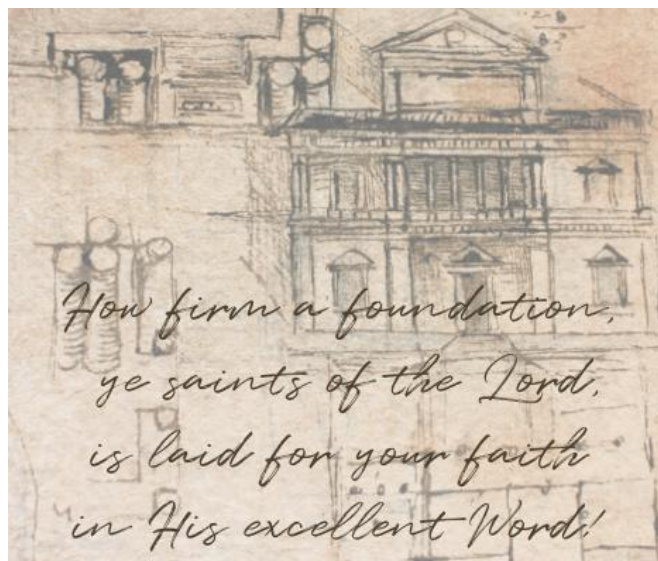 How firm a foundation,
ye saints of the Lord,
is laid for your faith
in His excellent Word!